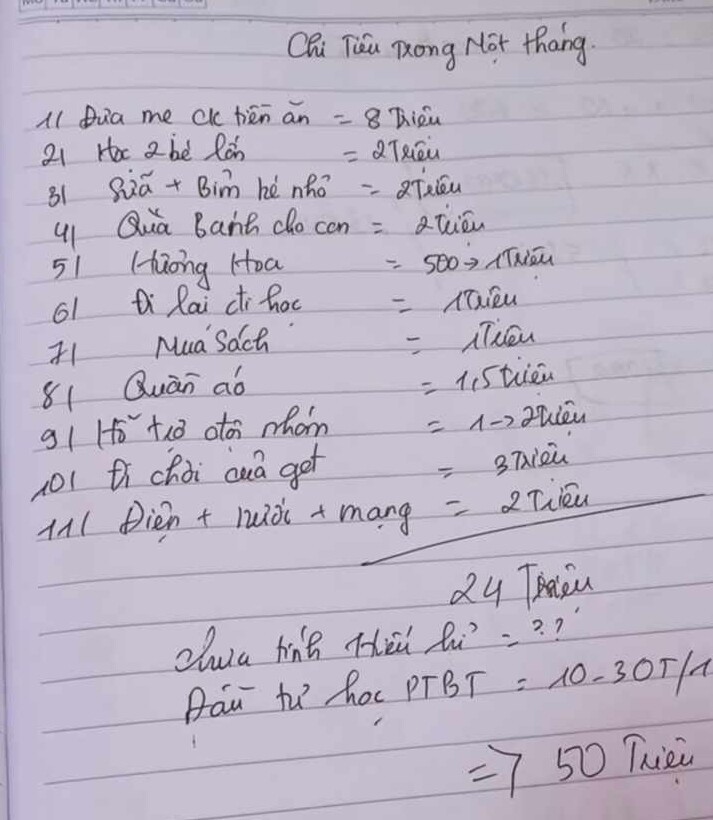 Chi Tiêu Trong Một tháng.
1/ Đưa mẹ ck tiền ăn = 8 Triệu
2/ Học 2 bé lớn = 2 Triệu
3/ Sữa + Bỉm bé nhỏ = 2 Triệu
4/ Quà Bánh cho con = 2 triệu
5/ Hương Hoa = 500 → 1 Triệu
6/ Đi lại đi học = 1 Triệu
7/ Mua Sách = 1 Triệu
8/ Quần áo = 1,5 triệu
9/ Hỗ trợ đội nhóm = 1 → 2 triệu
10/ Đi chơi cuả get = 3 Triệu
11/ Điện + nước + mạng = 2 Triệu
24 Triệu
chưa tính Hiếu hỉ = ??
Đầu tư học PTBT = 10 - 30T/1
=> 50 Triệu